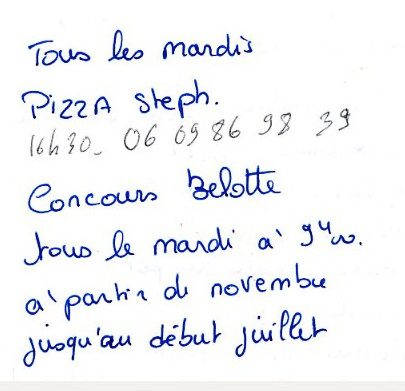 Tous les mardis
PizzA Steph.
16h30_ 06 09 86 98 39
Concours Belotte
tous le mardi à 9H00.
à partir de novembre
jusqu'au début juillet